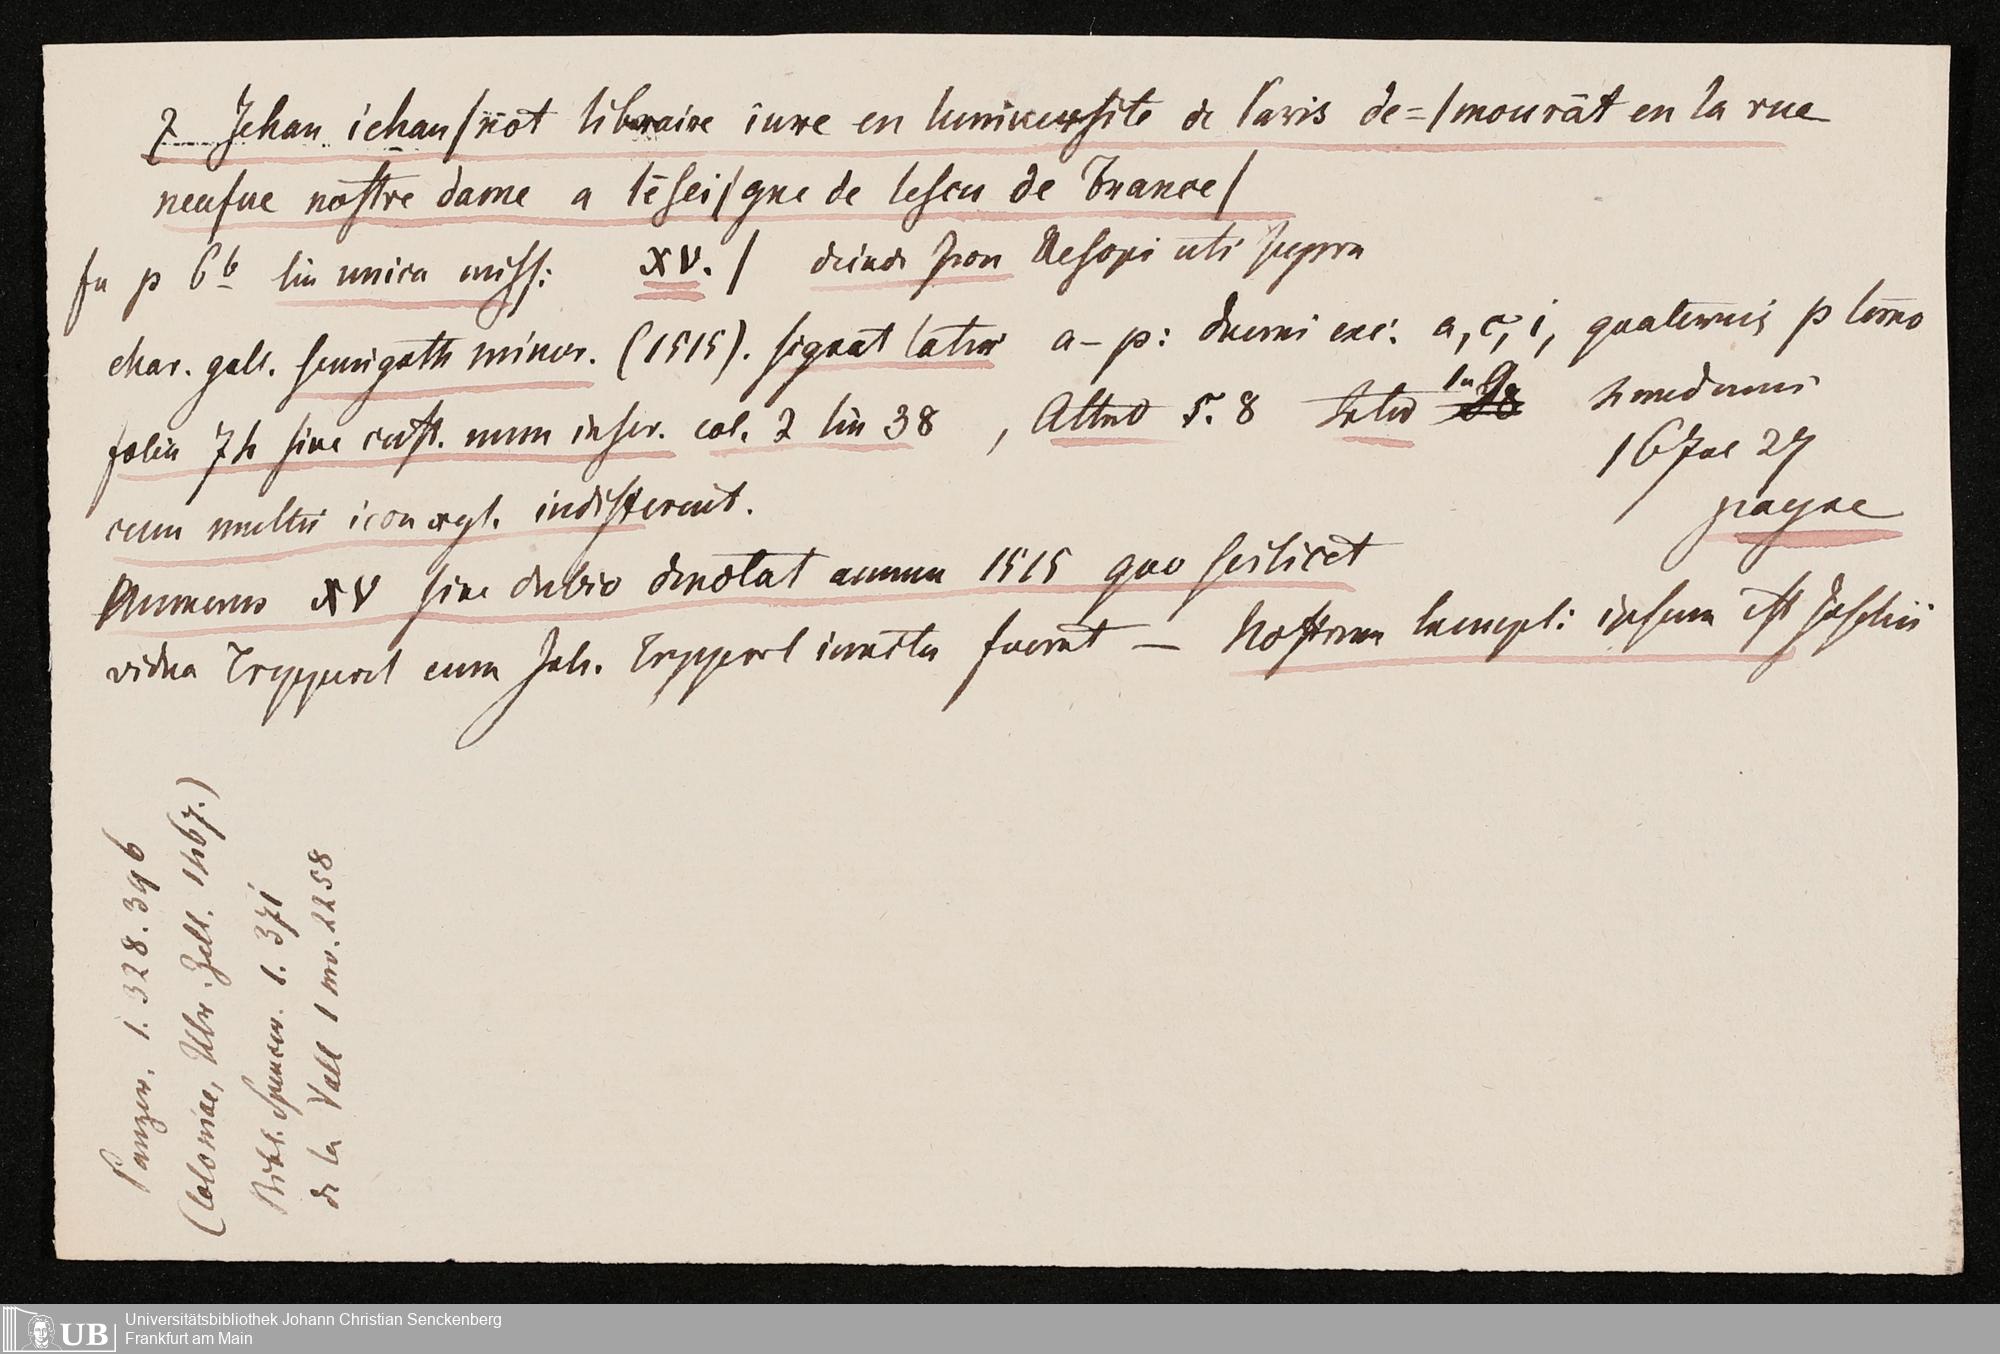 ⁊ Jehan iehan/nōt libraire iure en luniuersite de Paris de=/mourāt en la rue
neufue nostre dame a lēsei/gne de lescu de France/
in p 6b lin unica miss: XV. / deinde Icon Aesopi uti supra
char. gall. semigoth minor. (1515). signat latin a–p: duerni exc. a, c, i, quaternis p terno
folia 74 sine cust. num inscr. col. 2 lin 38, Altud 5. 8 Latud In 9
cum multis icon xyl. indifferent.
16 Jul 27
payne
Numerus XV sine dubio denotat annum 1515 quo scilicet
vidua Trepperel cum Joh. Trepperel iuncta fuerat — Nostrum exempl: ipsum est
Panzer. 1. 328. 396
(Coloniae, Ulr. Zell. 1467.)
Bibl. Spencer. 1. 371
de la Vall 1 nro. 2258
Universitätsbibliothek Johann Christian Senckenberg
Frankfurt am Main
UB